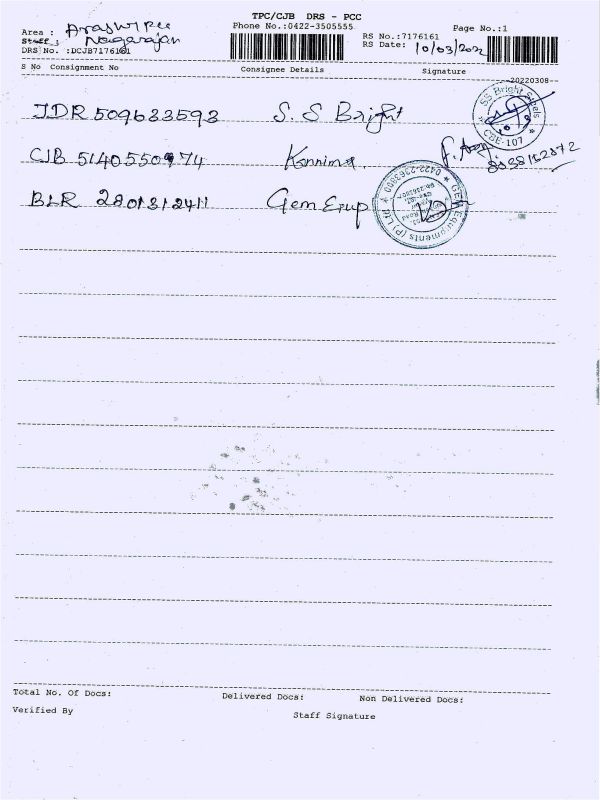 TPC/CJB DRS - PCC
Phone No.:0422-3505555
Page No.:1
Area :
Staff : Nagarajan
DRS No. :DCJB7176161
RS No.:7176161
RS Date: 10/03/2022
S No Consignment No Consignee Details Signature
20220308
JDR 509633593 S. S Bright
SS Bright Steels
CBE-107
CJB 5140550974 Kannima
BLR 280131241 Gem Equp
GEM Equipments (P) Ltd
0422-2363800
Total No. Of Docs: Delivered Docs: Non Delivered Docs:
Verified By Staff Signature